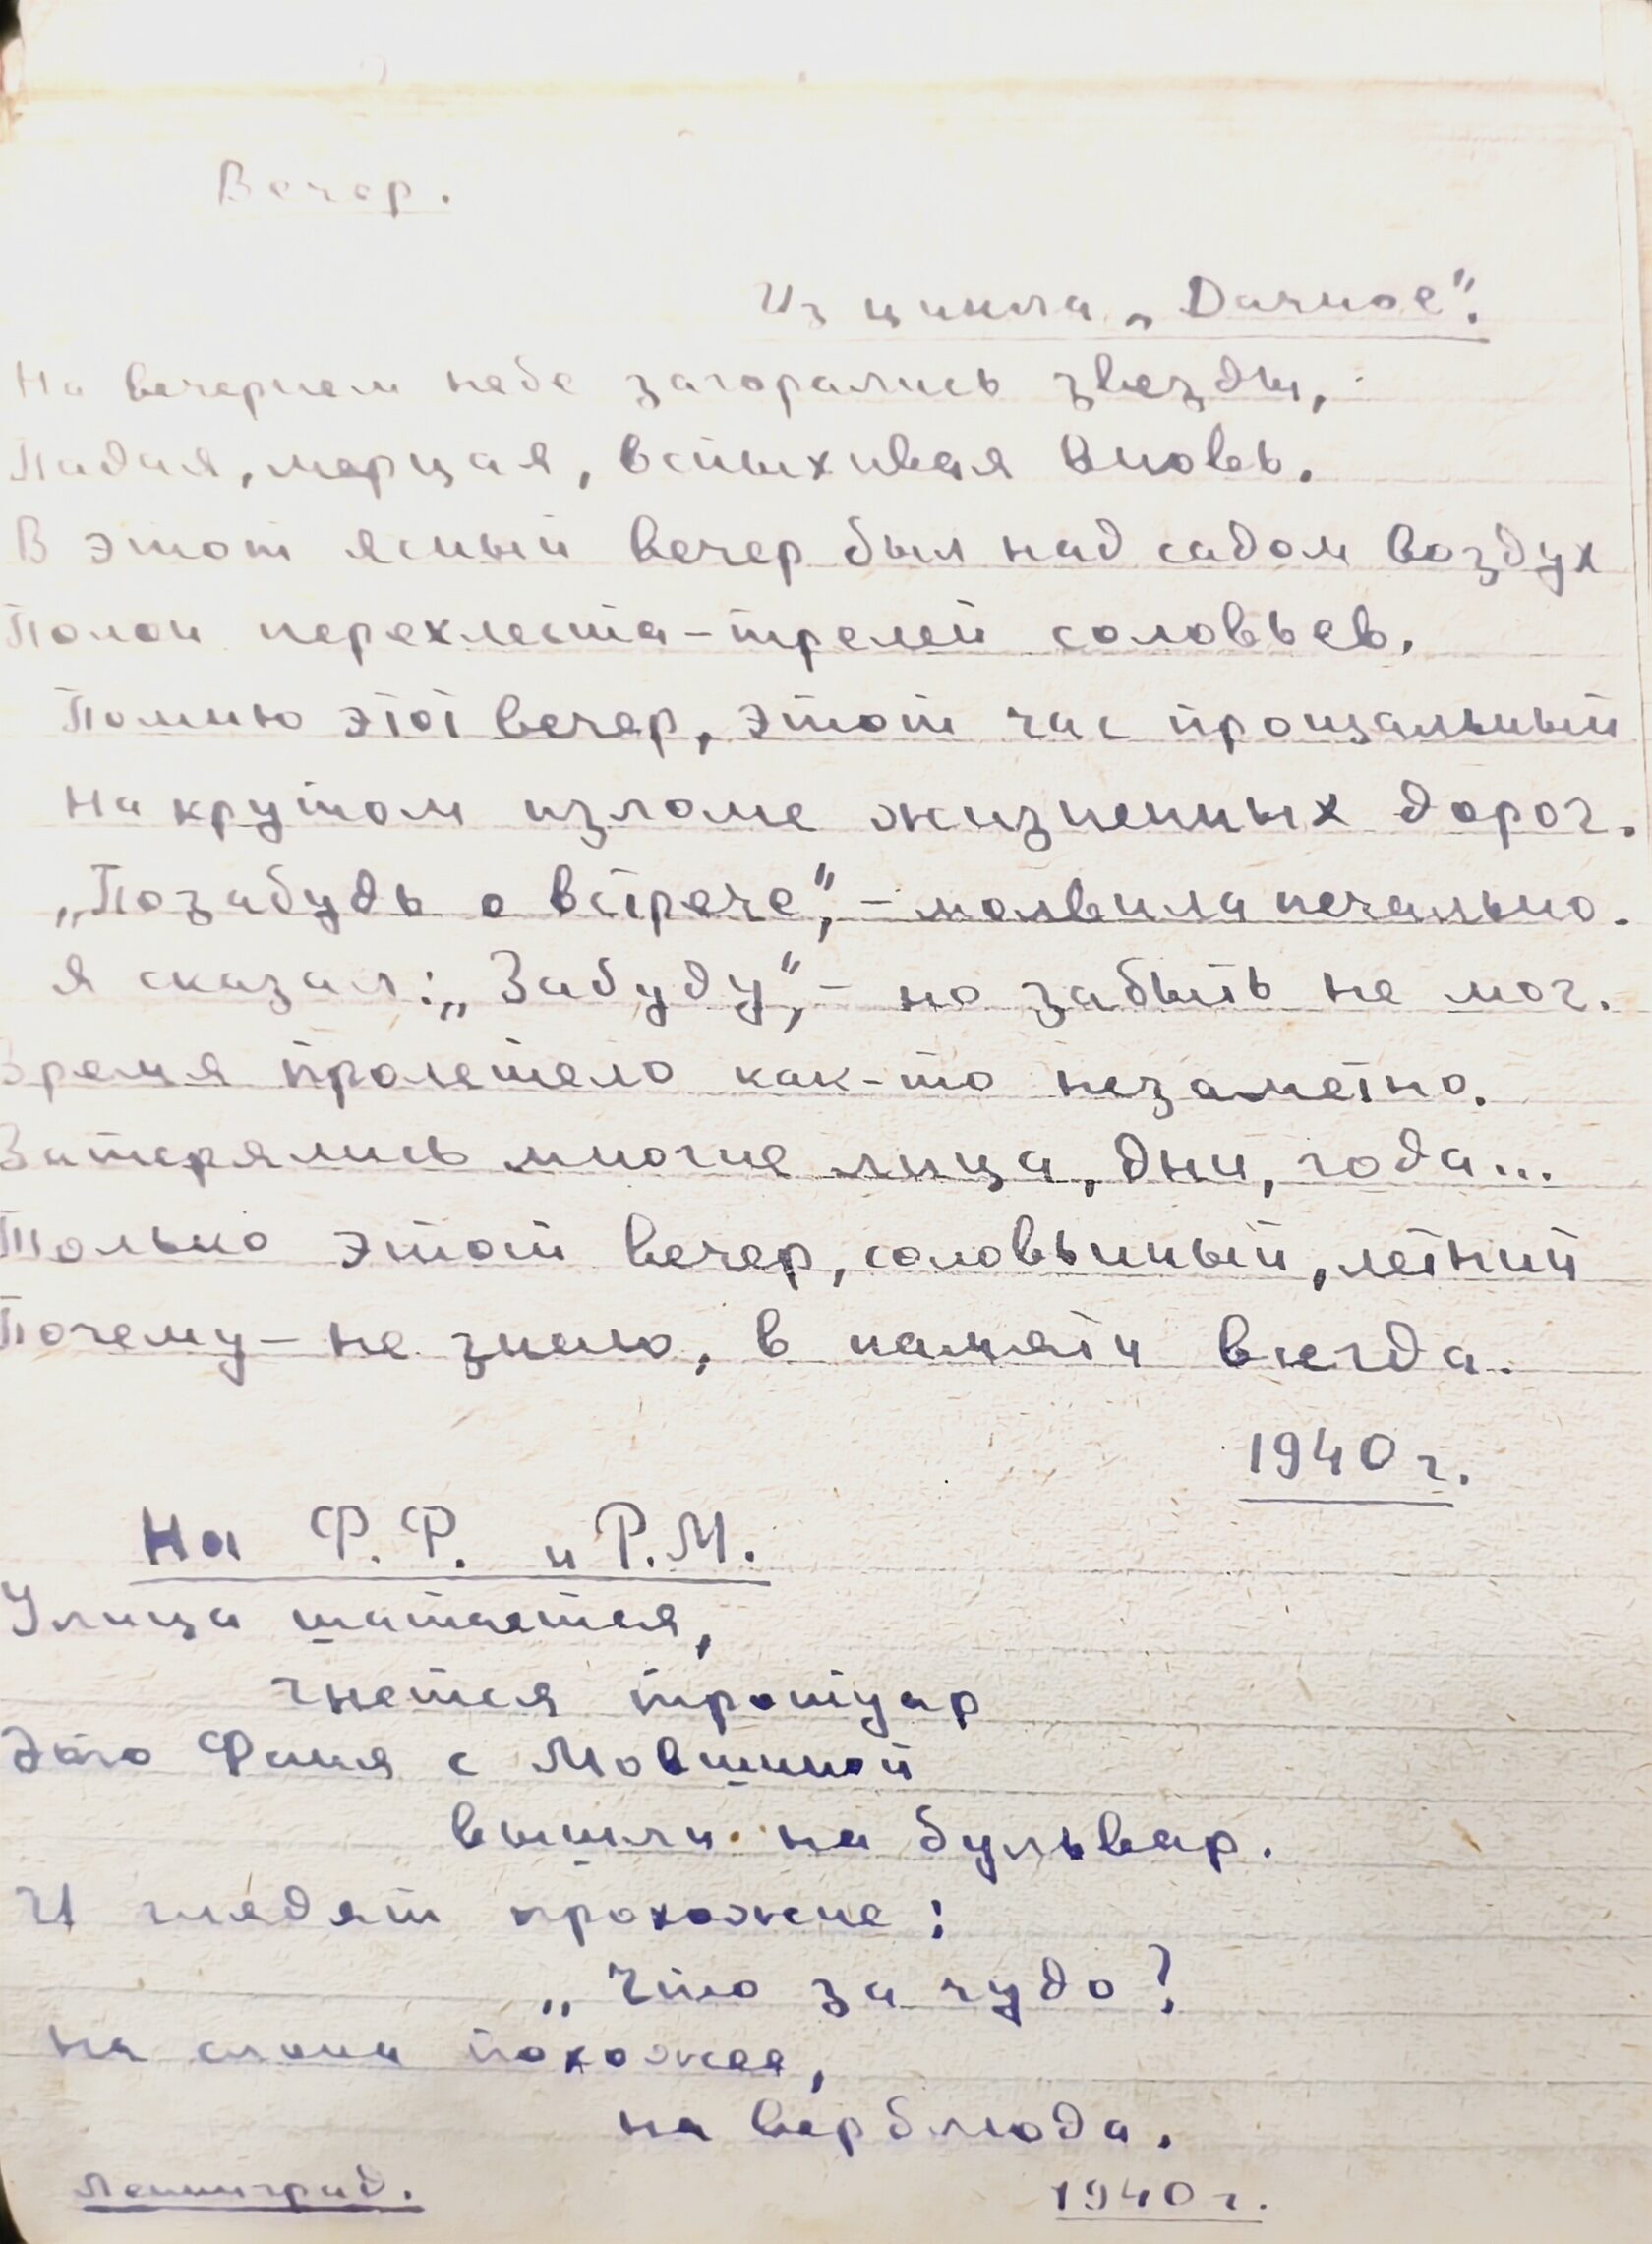 Вечер.
Из цикла „Дачное“.
На вечернем небе загорались звезды,
Падая, мерцая, вспыхивая вновь.
В этот ясный вечер был над садом воздух
Полон перехлеста-трелей соловьев.
Помню этот вечер, этот час прощальный
На крутом изломе жизненных дорог.
„Позабудь о встрече“, – молвила печально.
Я сказал: „Забуду“, – но забыть не мог.
Время пролетело как-то незаметно.
Затерялись многие лица, дни, года...
Только этот вечер, соловьиный, летний
Почему – не знаю, в памяти всегда.
1940 г.
На Ф.Ф. и Р.М.
Улица шатается,
гнется тротуар
Это Фаня с Мовшиной
вышли на бульвар.
И глядят прохожие:
„Что за чудо?
на слона похожее,
на верблюда.
Ленинград. 1940 г.